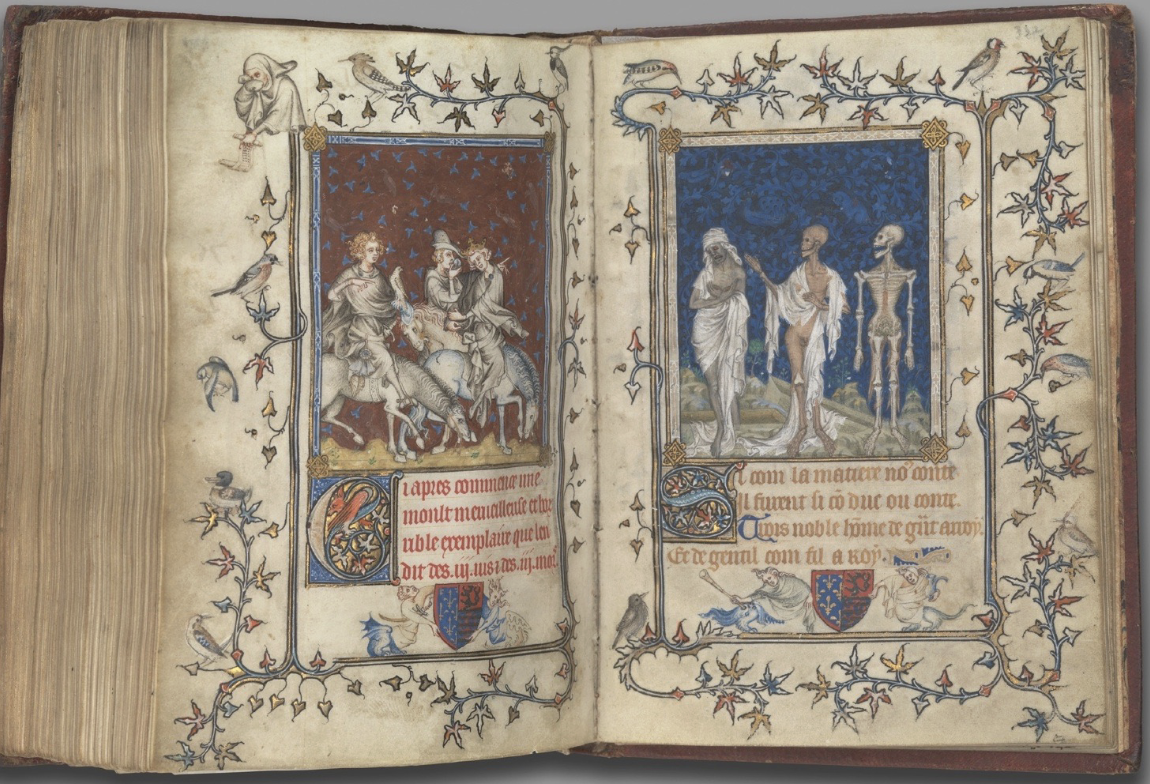 Ci apres commence une
moult merveilleuse et hor
rible exemplaire que len
dit des .iij. vis ⁊ des .iij. mors.
Si com la matiere nõ conte
Il furent si cõ duc ou conte.
Trois noble hõme de gñt arroy.
Et de gentil com fil a roy.